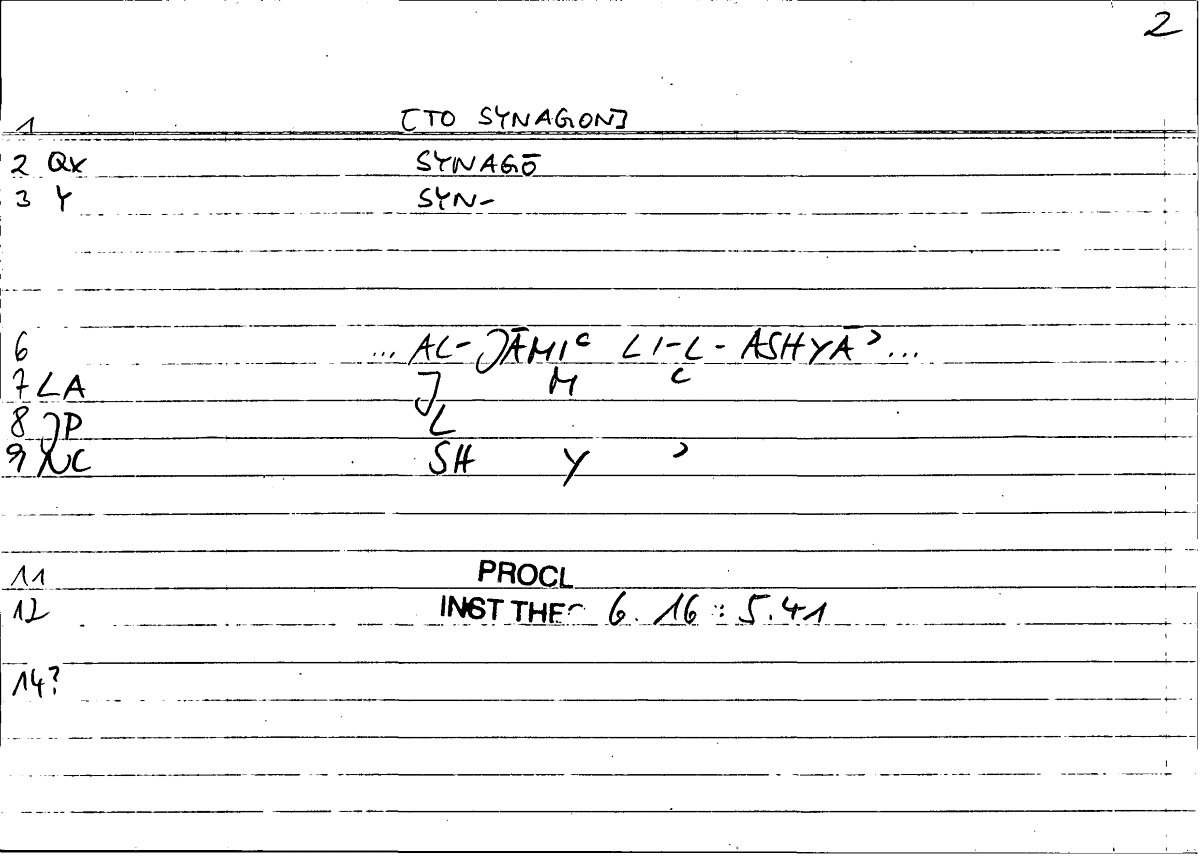 2
1 [TO SYNAGON]
2 QX SYNAGŌ
3 Y SYN-
6 ... AL-JĀMIᶜ LI-L-ASHYĀʾ...
7 LA J M ᶜ
8 JP L
9 NC SH Y ʾ
11 PROCL
12 INST THE 6.16 : 5.41
14?